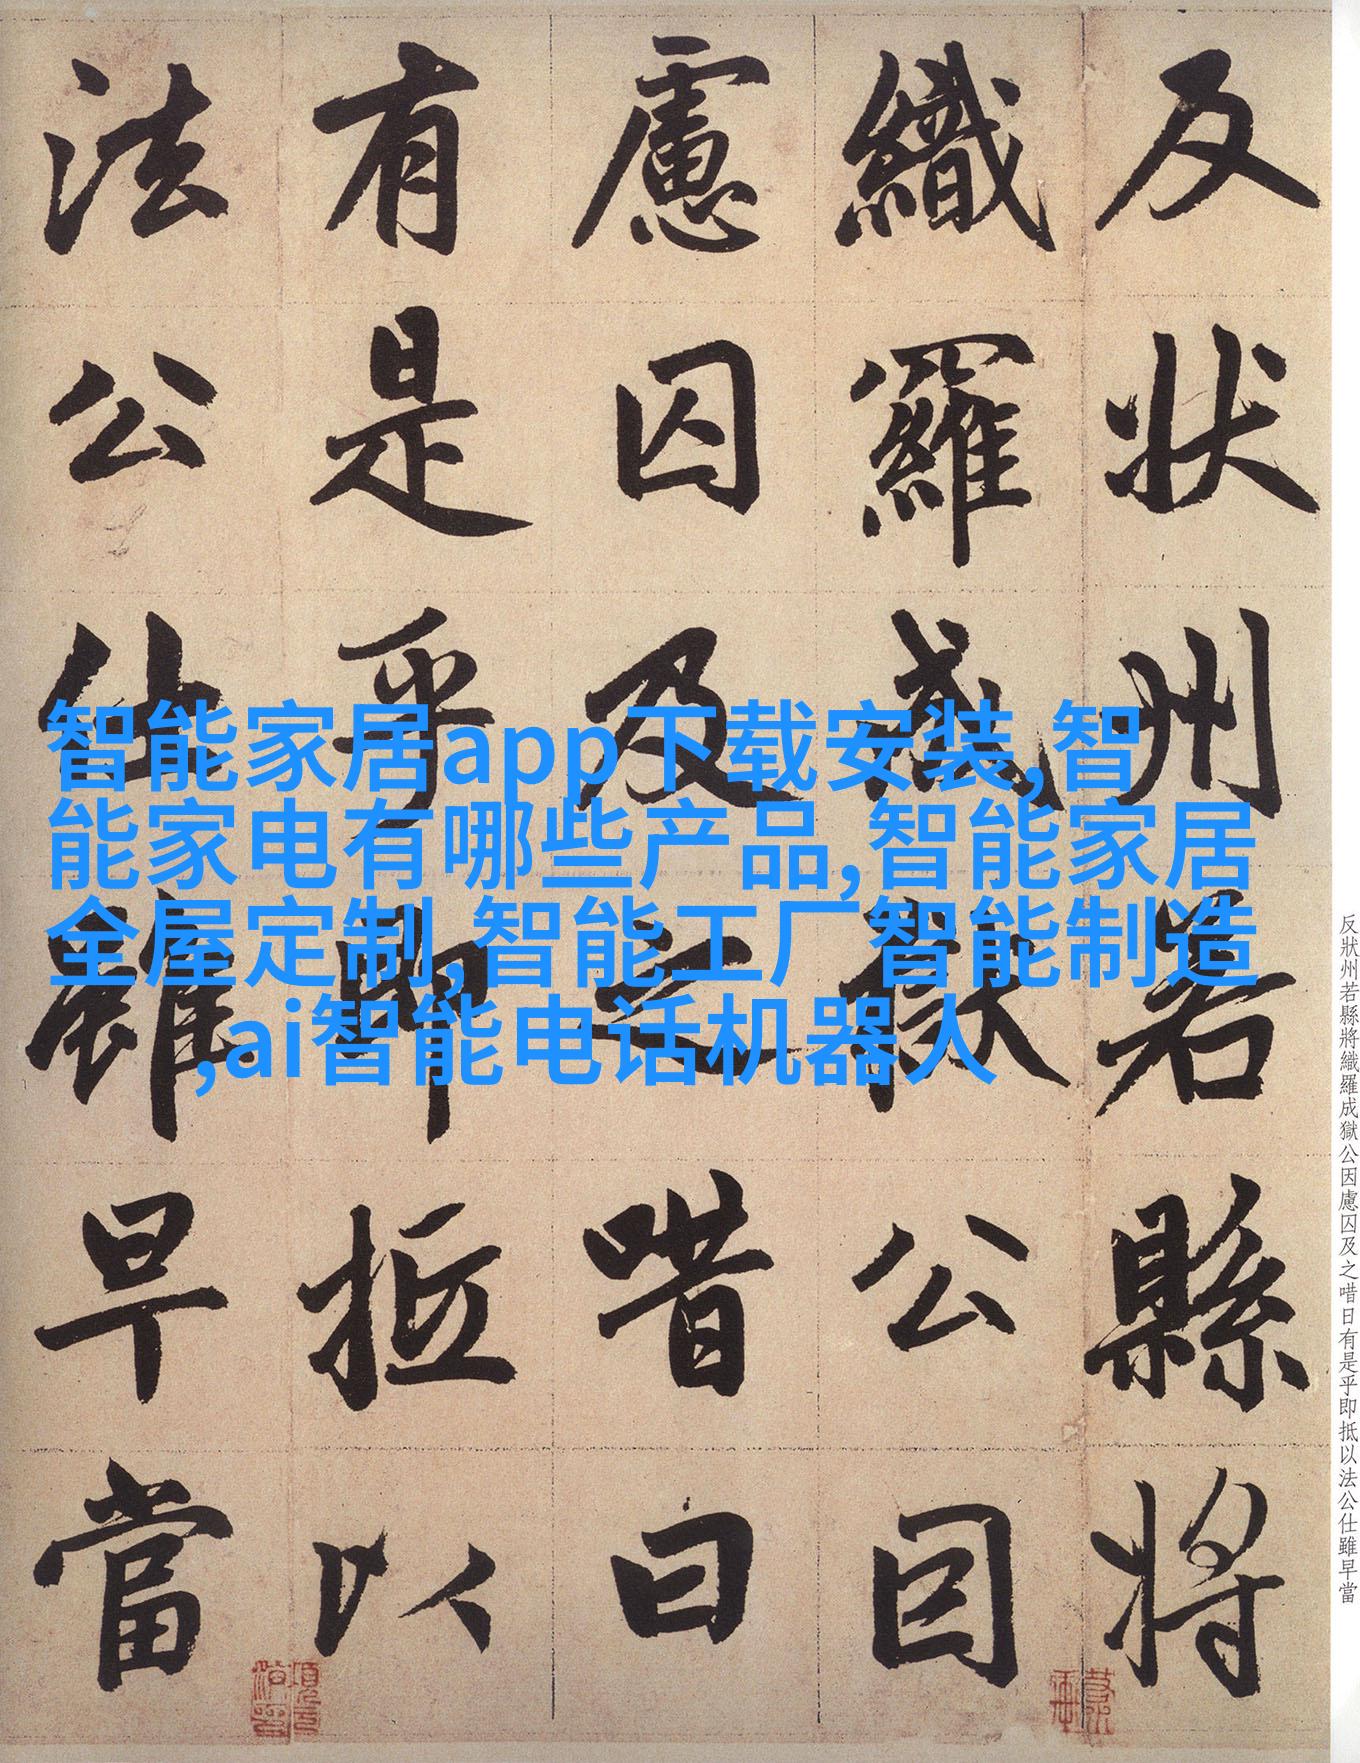 反狀州若縣將
織羅成獄公因
慮囚及之唶曰
有是乎即抵以
法公仕雖早當
智能家居app下载安装,智
能家电有哪些产品,智能家居
全屋定制,智能工厂智能制造
,ai智能电话机器人
反狀州若縣將織羅成獄公因慮囚及之唶日有是乎即抵以法公仕雖早當